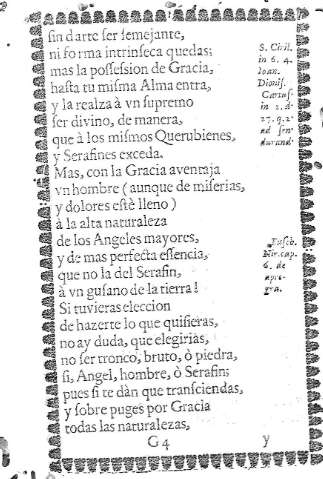 sin darte ser semejante,
ni forma intrinseca quedas;
mas la possession de Gracia,
hasta tu misma Alma entra,
y la realza à vn supremo
ser divino, de manera,
que à los mismos Querubienes,
y Serafines exceda.
Mas, con la Gracia aventaja
vn hombre ( aunque de miserias,
y dolores estè lleno )
à la alta naturaleza
de los Angeles mayores,
y de mas perfecta essencia,
que no la del Serafin,
à vn gusano de la tierra!
Si tuvieras eleccion
de hazerte lo que quisieras,
no ay duda, que elegirias,
no ser tronco, bruto, ò piedra,
si, Angel, hombre, ò Serafin;
pues si te dàn que transciendas,
y sobre puges por Gracia
todas las naturalezas,
G 4 y
S. Civil.
in 6. 4.
Ioan.
Dionis.
Cartus-
in 2. d.
27. q. 2.
ad sen
durand.
Euseb.
Nir. cap.
6. de
apre-
gra.